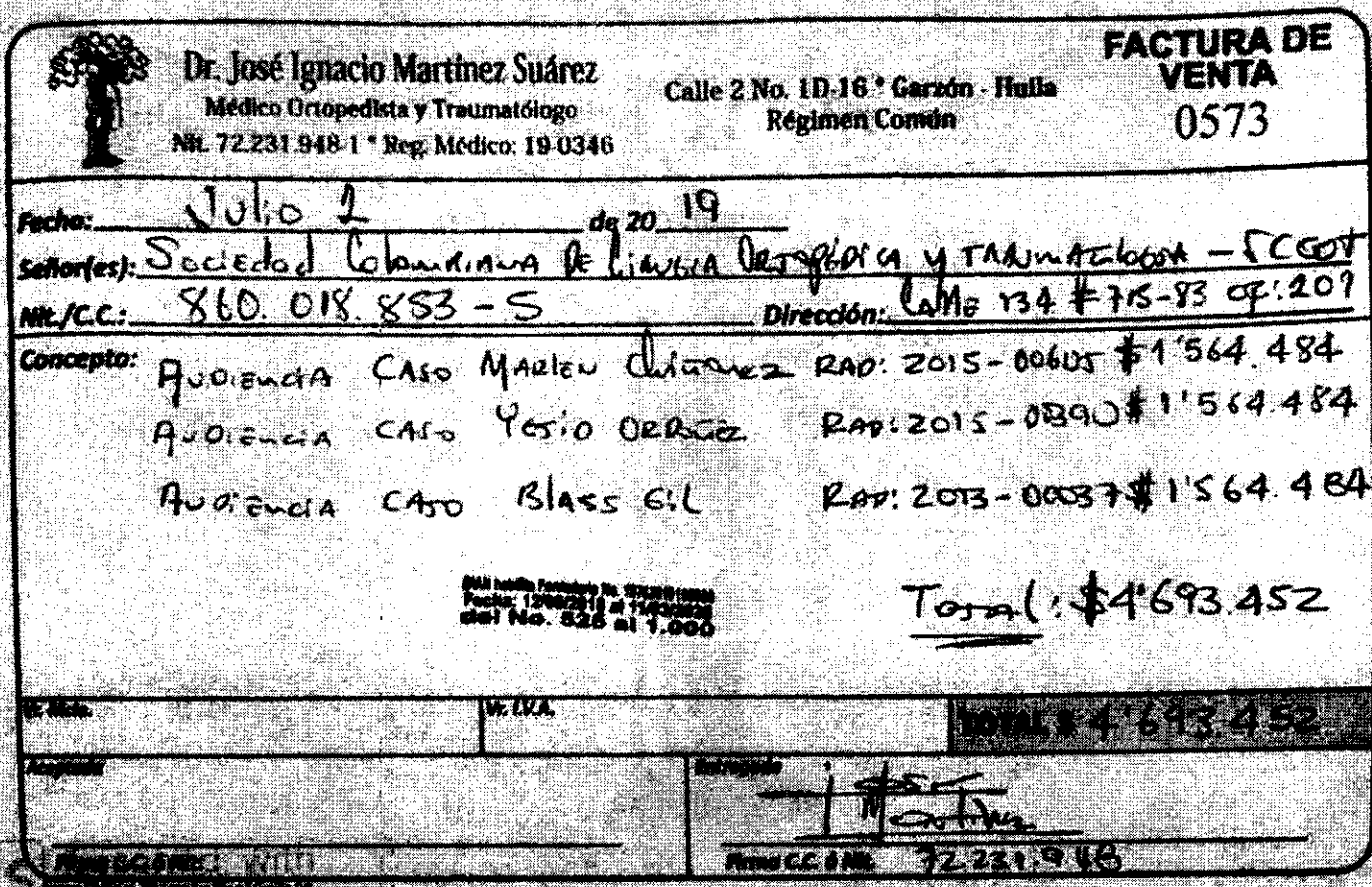 FACTURA DE
VENTA
0573
Dr. José Ignacio Martínez Suárez
Médico Ortopedista y Traumatólogo
Nit. 72.231.948-1 * Reg. Médico: 19-0346
Calle 2 No. 1D-16 * Garzón - Huila
Régimen Común
Fecha: Julio 2 de 20 19
Señor(es): Sociedad Colombiana De Cirugía Ortopédica y Traumatología - SCCOT
Nit./C.C.: 860.018.853-5 Dirección: Calle 134 # 71B-83 of: 207
Concepto: Audiencia CASO MARLEN RAD: 2015-00605 $1'564.484
Audiencia CASO Yesid Ordoñez RAD: 2015-00390 $1'564.484
Audiencia CASO Blass Gil RAD: 2013-00037 $1'564.484
del No. 526 al 1.000
Total: $4'693.452
Vr. I.V.A.
TOTAL $ 4'693.452
Aceptada
Entregada
José
Martínez
Firma C.C. ó Nit. 72.231.948